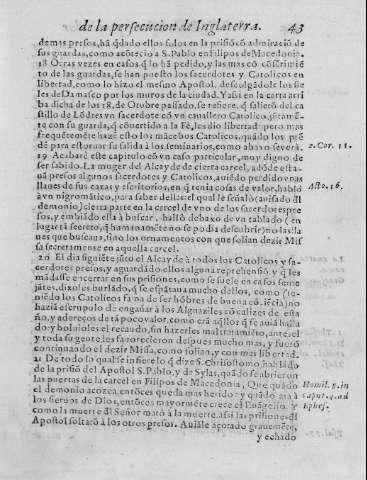 de la persecucion de Inglaterra. 43
demas presos, ha q̃dado ellos solos en la prisiõ cõ admiraciõ de
sus guardas, como acõtecio a S. Pablo en Filipos de Macedonia.
18 Otras vezes en casos, q̃ lo hã pedido, y las mas cõ cõsẽtimiẽ
to de las guardas, se han puesto los sacerdotes y Catolicos en
libertad, como lo hizo el mesmo Apostol, descolgãdole los fie
les de Damasco por los muros de la ciudad. Y assi en la carta arri
ba dicha de los 18. de Otubre passado, se refiere, q̃ saliero del ca
stillo de Lõdres vn sacerdote cõ vn cauallero Catolico, jũtamẽ
te con su guarda, q̃ cõuertido a la Fè, les dio libertad: pero mas
frequẽtemẽte hazẽ esto los mãcebos Catolicos, quãdo los prẽ
dẽ para estoruar su salida a los seminarios, como abaxo se verà.
2. Cor. 11.
19 Acabarè este capitulo cõ vn caso particular, muy digno de
ser sabido. La muger del Alcayde de cierta carcel, adõde esta-
uã presos algunos sacerdotes y Catolicos, auiẽdo perdido vnas
llaues de sus caxas y escritorios, en q̃ tenia cosas de valor, hablò
Acto. 16.
a vn nigromãtico, para saber dellas: el qual le señalò (auisado dl
demonio) cierta parte en la carcel de vno de los sacerdotes pre-
sos, y embiãdo ella a buscar, hallò debaxo de vn tablado (en
lugar tã secreto, q̃ humanamẽte no se podia descubrir) no las lla
ues que buscaua, sino los ornamentos con que solian dezir Mis
sa secretamente en aquella carcel.
20 El dia siguiẽte jũtò el Alcayde à todos los Catolicos y sa-
cerdotes presos, y aguardãdo ellos alguna reprehensiõ, y q̃ les
mãdasse encerrar en sus prisiones, como se suele en casos seme
jãtes, dixoles burlãdo, q̃ se espãtaua mucho dellos, como (te-
niẽdo los Catolicos fama de ser hõbres de buena cõsciẽcia) no
haziã escrupulo de engañar a los Alguaziles cõ calizes de esta
ño, y adereços de tã poco valor, como erã aq̃llos q̃ se auiã halla
do: y boluioles el recaudo, sin hazerles mal tratamiẽto, ante el
y toda su gente les fauorecieron despues mucho mas, y fuerõ
continuando el dezir Missa, como solian, y con mas libertad.
21 De todo lo qual se infiere lo q̃ dize S. Chrisostomo, hablãdo
de la prisiõ del Apostol S. Pablo, y de Sylas, quãdo se abrieron
las puertas de la carcel en Filipos de Macedonia, Que quãdo
Homil. 8. in
el demonio acozea, entõces queda mas herido: y quãdo ata à
caput. 4. ad
los sieruos de Dios, entõces mayormẽte crece el Euãgelio. Y
Ephes.
como la muerte dl Señor matò à la muerte, assi las prisiones dl
Apostol soltarõ à los otros presos. Auiãle açotado grauemẽte,
y echado